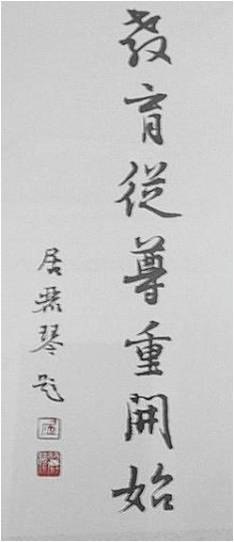 教育從尊重開始
居鼎琴題